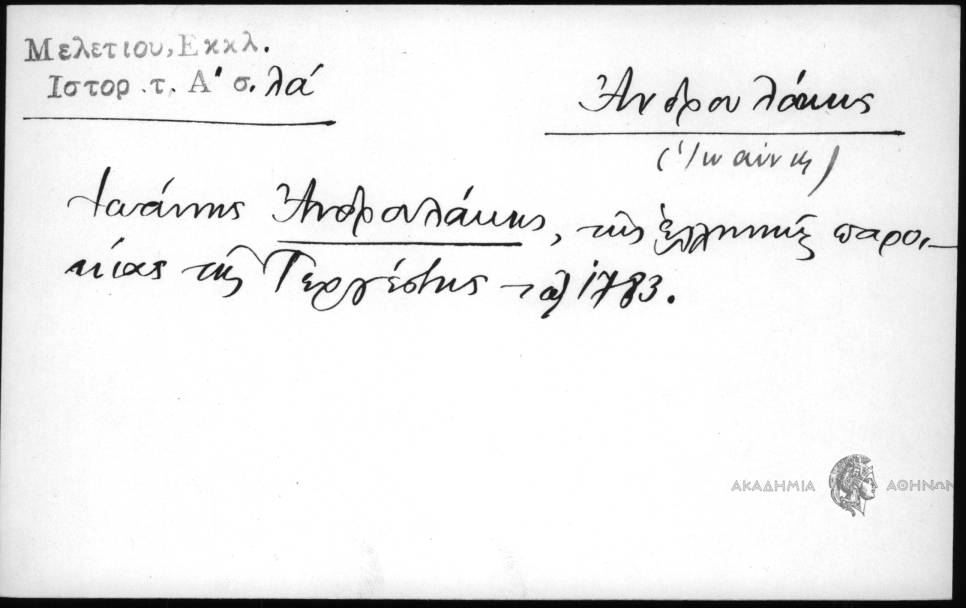 Μελετιου, Εκκλ.
Ιστορ .τ. Α' σ. λά
Ἀνδρουλάκης
(Ἰωάννης)
Ἰωάννης Ἀνδρουλάκης, τῆς ἑλληνικῆς παροι-
κίας τῆς Τεργέστης τῷ 1783.
ΑΚΑΔΗΜΙΑ ΑΘΗΝΩΝ